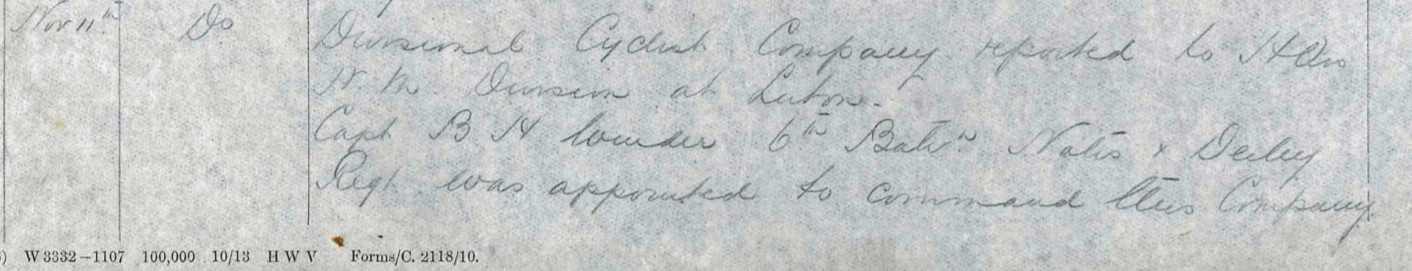 Nov 11th Do Divisional Cyclist Company reported to Hdqrs
N. M. Division at Luton.
Capt B H 6th Batn Notts & Derby
Regt was appointed to command this Company.
W 3332—1107 100,000 10/13 H W V Forms/C. 2118/10.